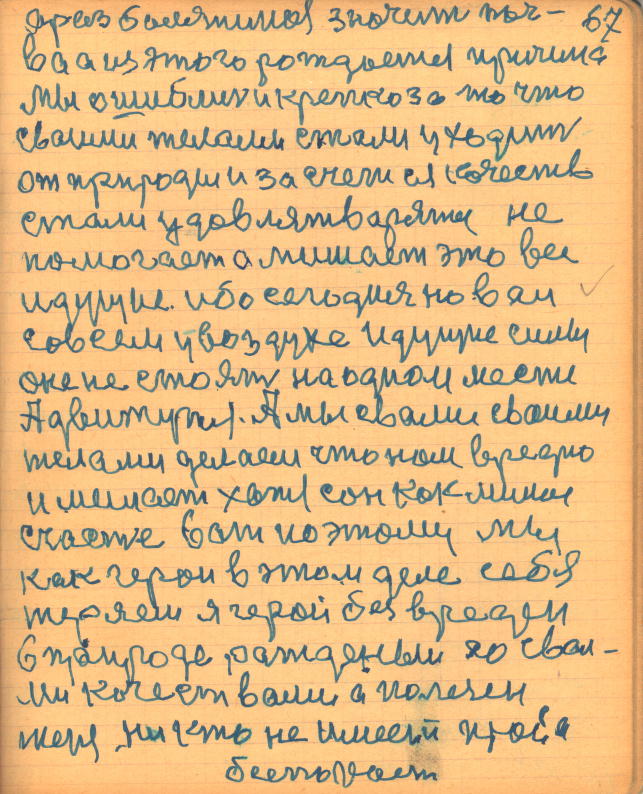 67
ва а из этого рождается причина
мы ошиблись крепко за то что
своими телами стали уходить
от природы и за счет ея качество
стали удовлятварятся не
помогает а мишает это все
идущие ибо сегодня новаи
совсем у воздухе идущие силы
оне не стоять на одном месте
А двитутся. А мы свами своими
телами делаем что нам вредно
и мешает хотя сон как мимое
счастье вот поэтому мы
как герои в этом деле себя
теряем я герой без вреден
в природе рожденыи со свои-
ми качествами а полезен
никто не имеет права